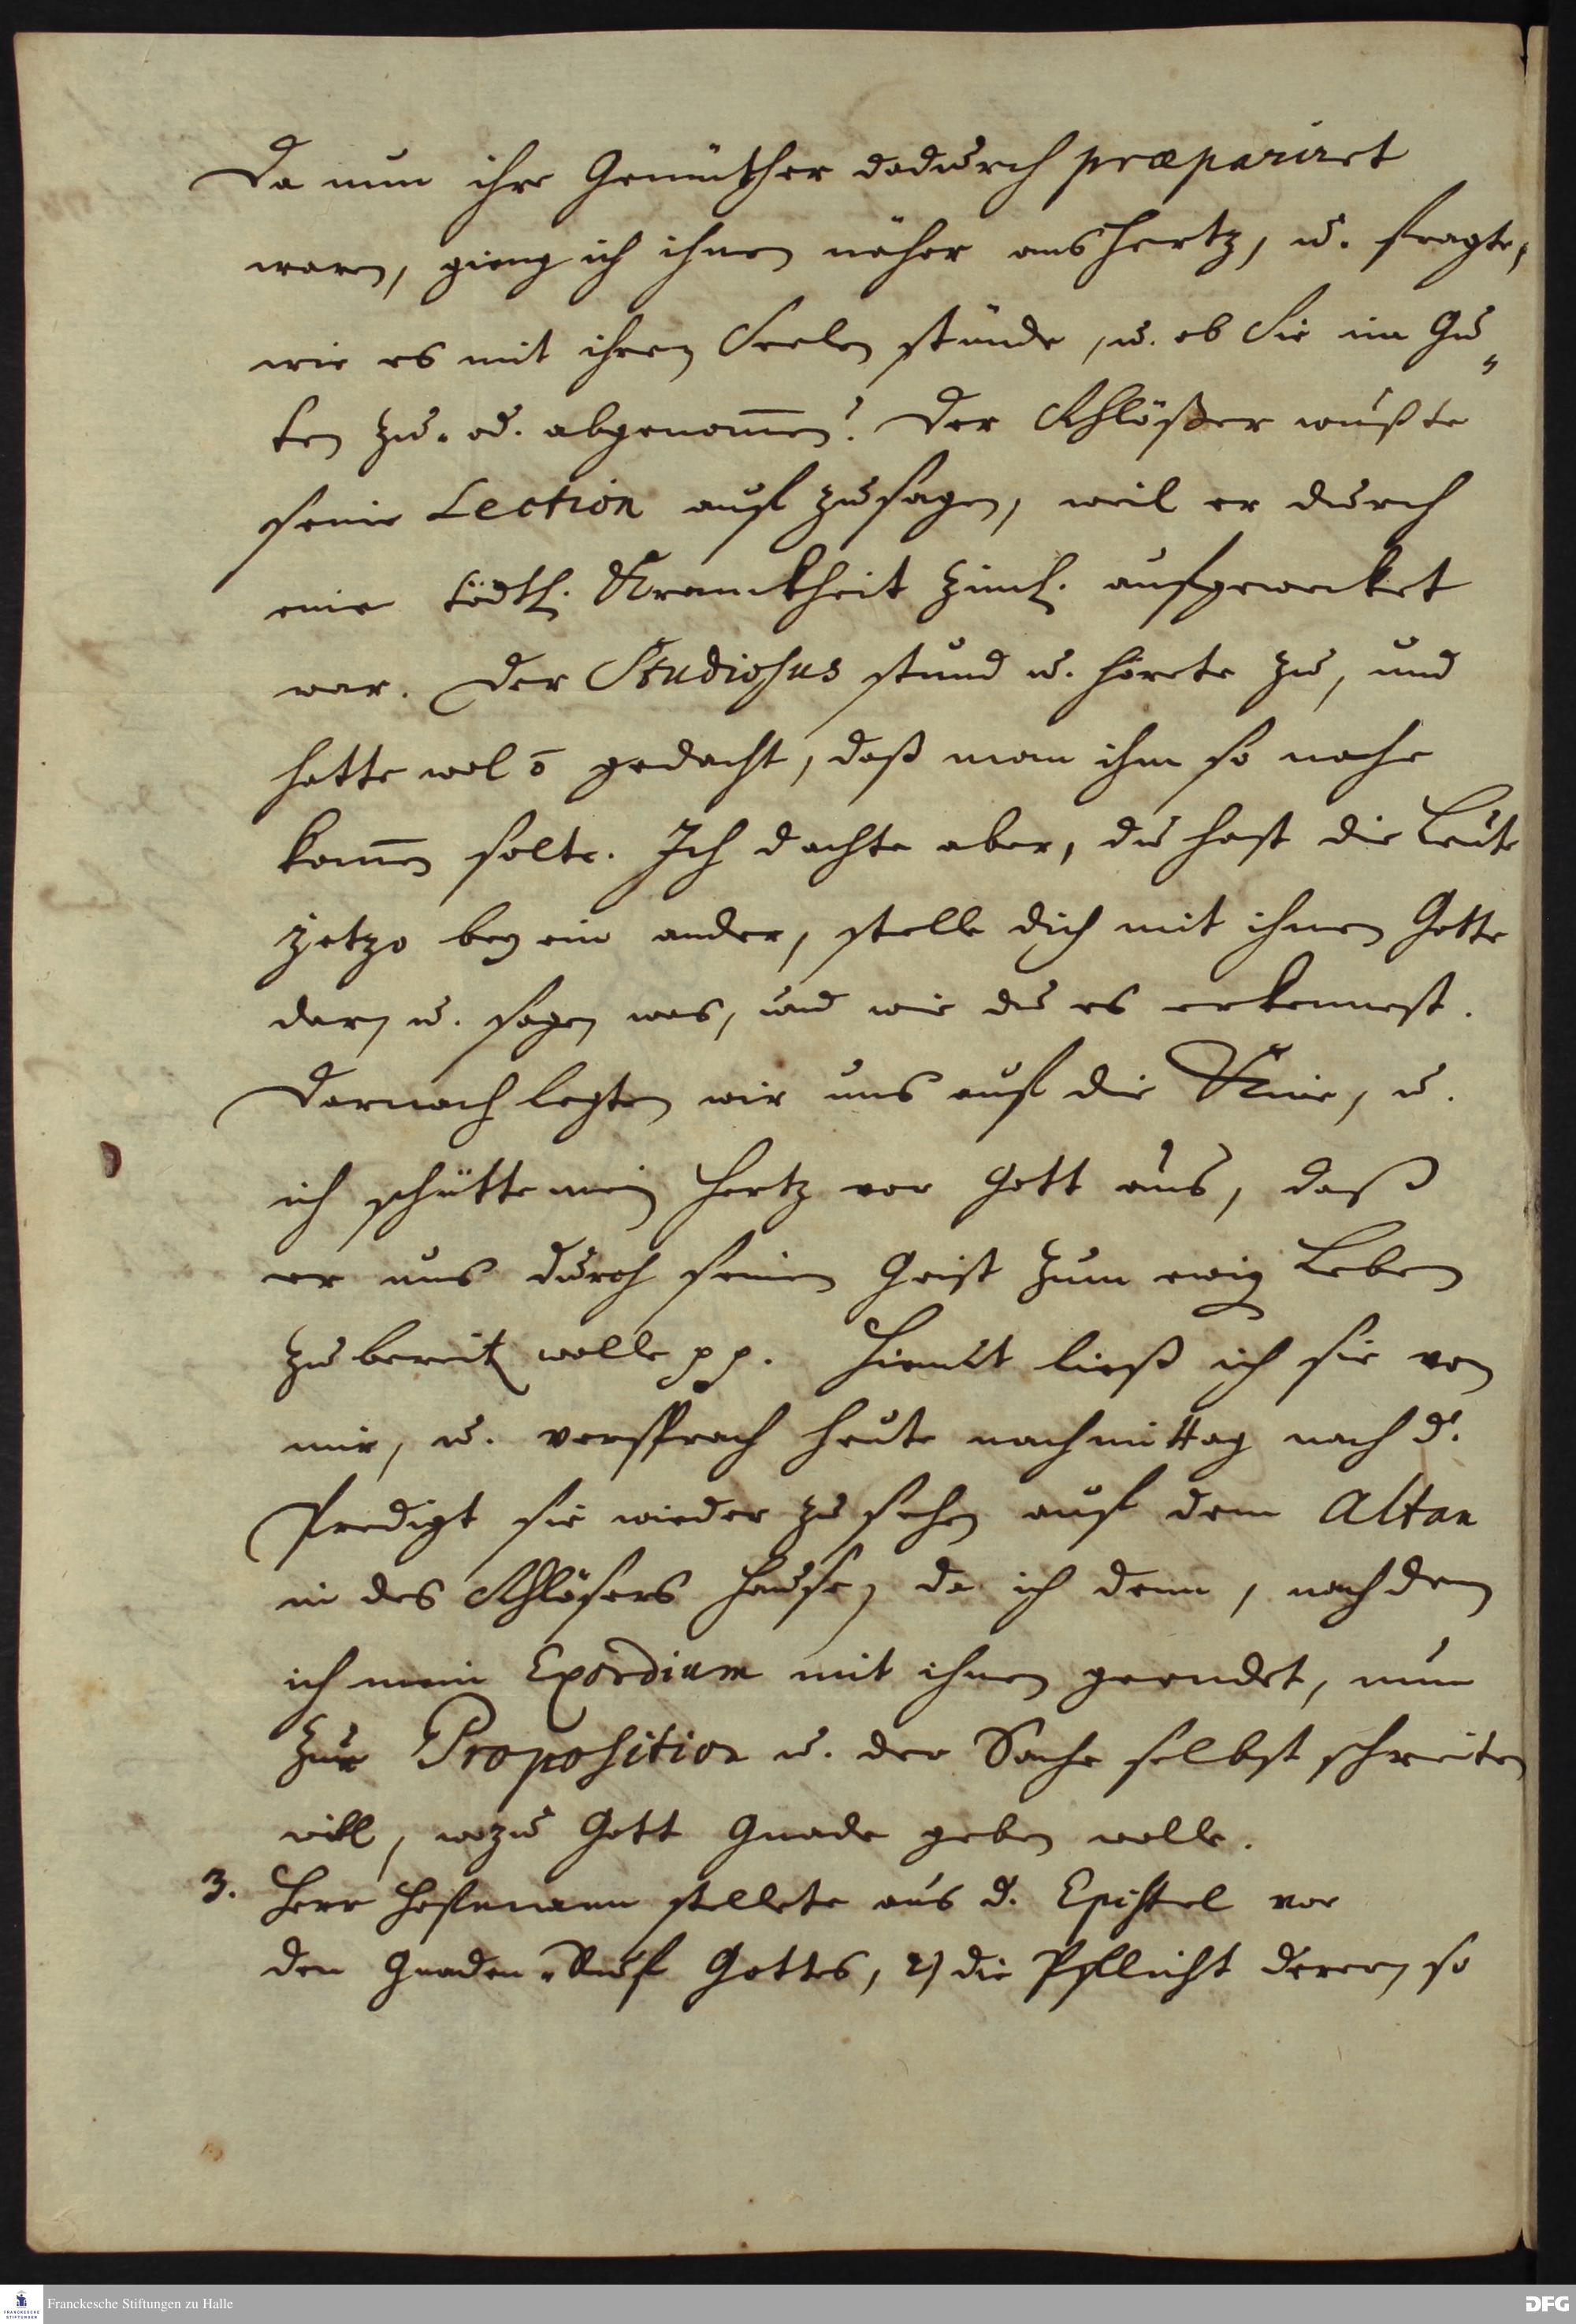 Da nun ihre Gemüther dadurch præpariret
waren, gieng ich ihnen näher ans Hertz, u. fragte,
wie es mit ihren Seelen stünde, u. ob Sie im Gu„
ten zu- od. abgenom̄en? Der Schlößer wußte
seine Lection auf zusagen, weil er durch
eine tödtl. Kranckheit ziml. aufgewecket
war. Der Studiosus stund u. hörete zu, und
hatte wol õ gedacht, daß man ihm so nahe
kom̄en solte. Ich dachte aber, du hast die Leute
jetzo bey ein ander, stelle dich mit ihnen Gotte
dar, u. sagen was, und wie du es erkennest.
Darnach legten wir uns auf die Knie, u.
ich schütte mein Hertz vor Gott aus, daß
er uns durch seinen Geist zum ewig Leben
zu bereit wolle pp. Hiemit ließ ich sie von
mir, u. versprach heute nachmittag nach d.
Predigt sie wieder zu sehen auf dem Altan
in des Schlößers Hause, da ich denn, nach dem
ich mein Exordium mit ihnen geendet, nun
zur Proposition u. der Sache selbst schreiten
will, wozu Gott Gnade geben wolle.
3. Herr Hofmann stellete aus d. Epistel vor
den Gnaden-Ruf Gottes, 2) die Pflicht derer, so
Franckesche Stiftungen zu Halle
DFG